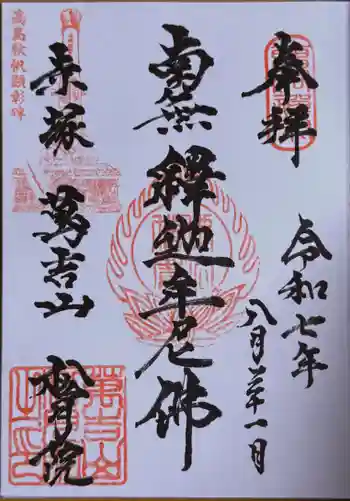 奉拝
令和七年
八月廿一日
南無釋迦牟尼佛
高島秋帆顕彰碑
赤塚 萬吉山 松月院
萬吉山